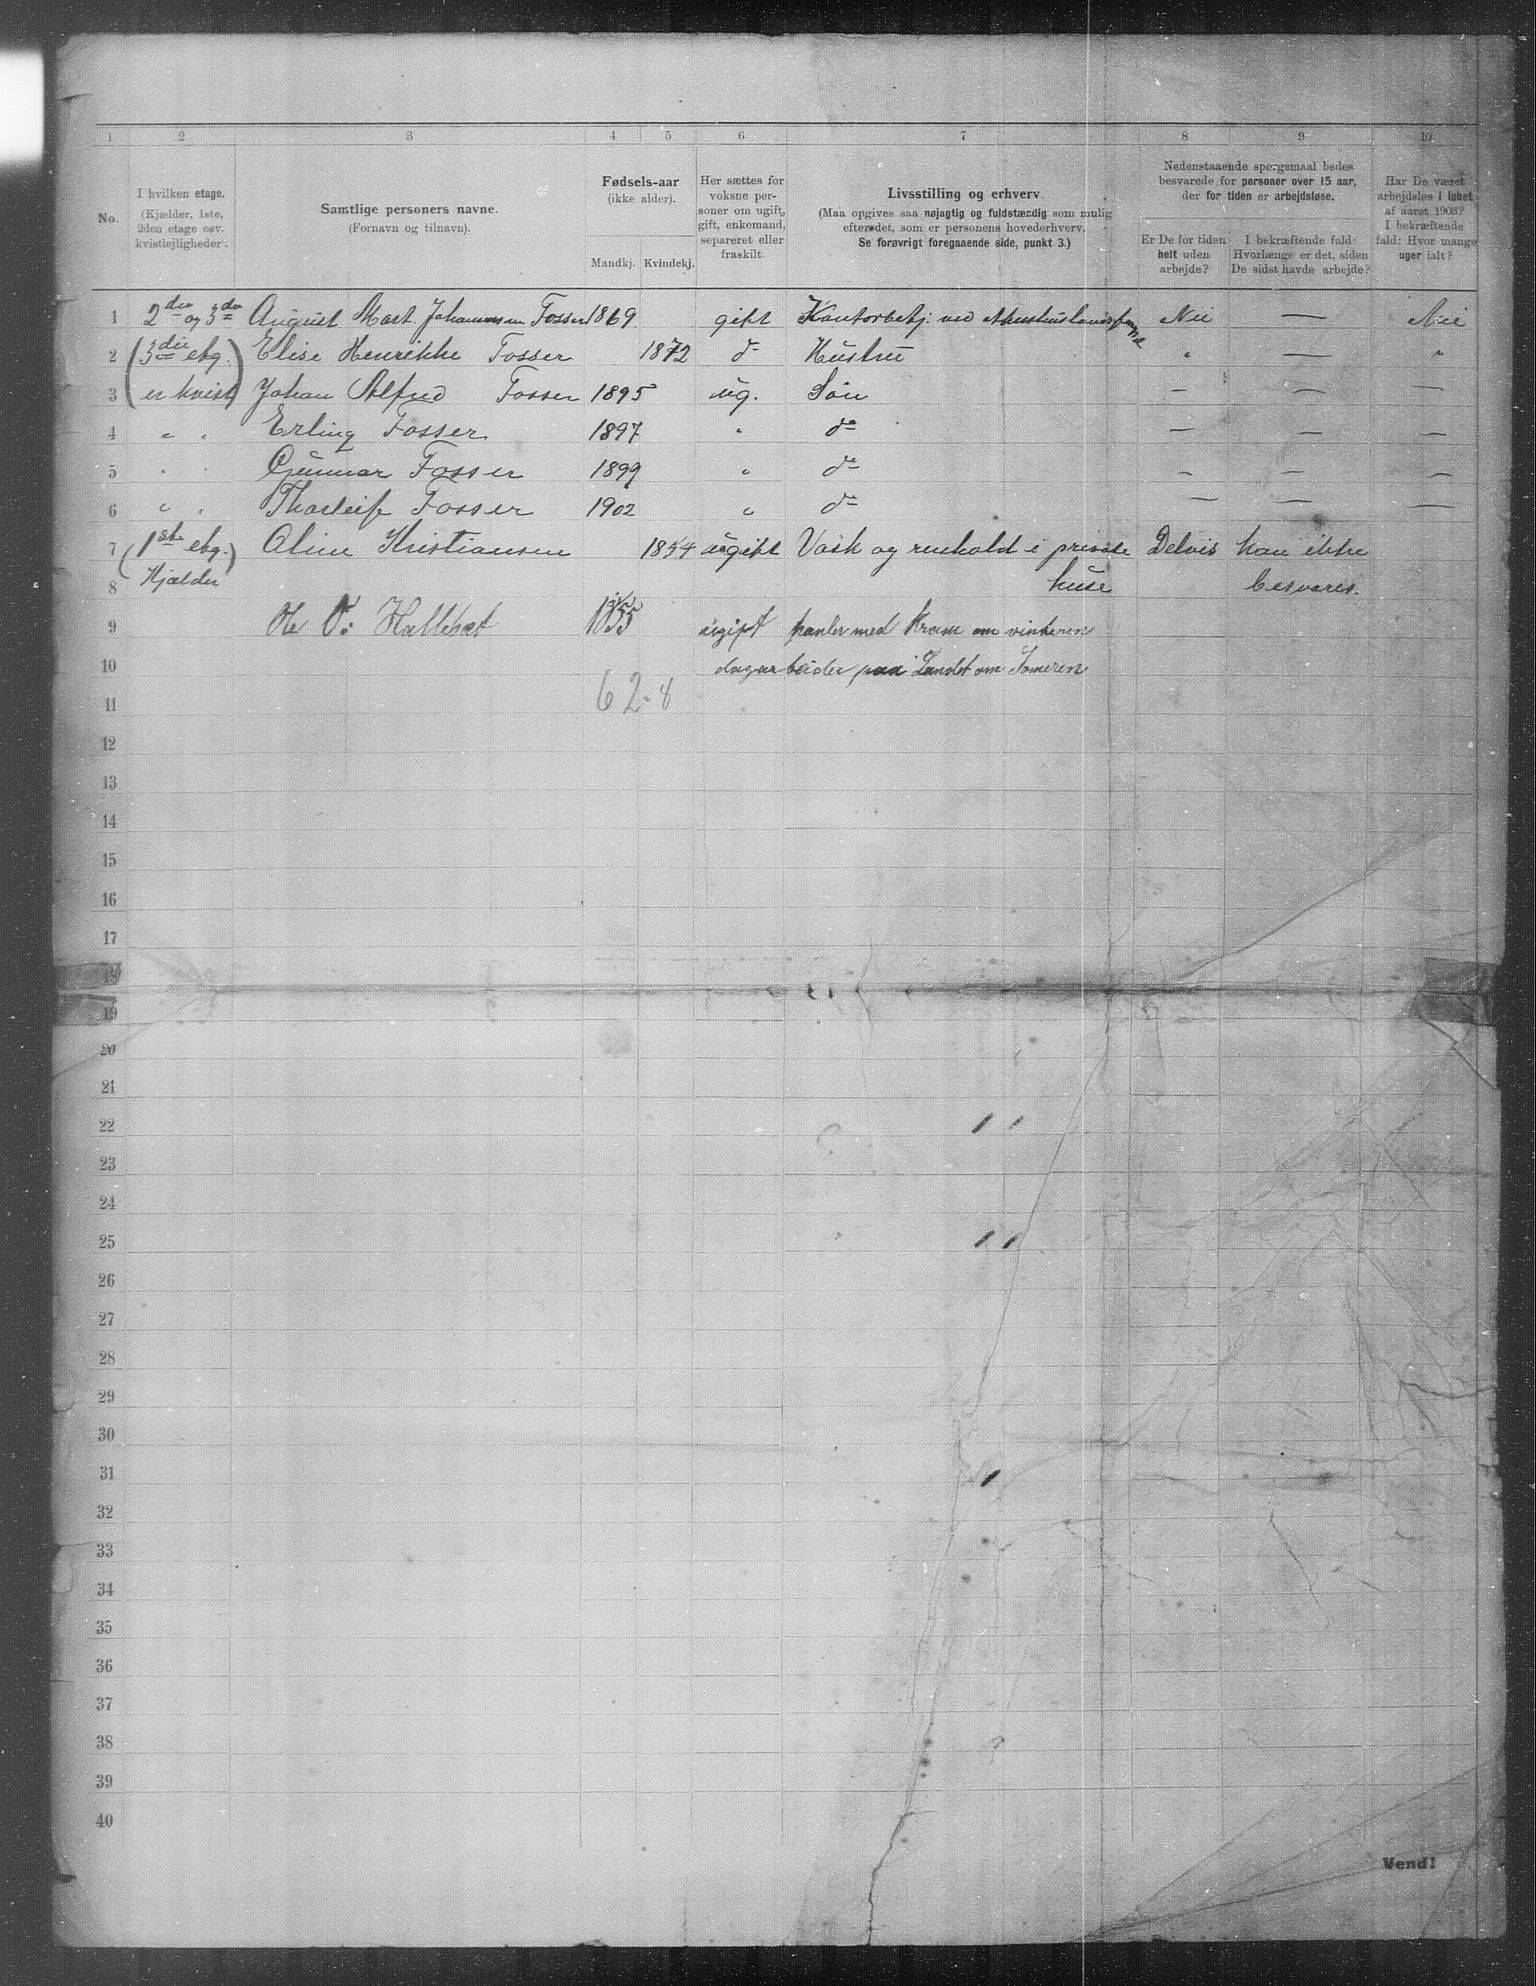 1 2 3 4 5 6 7 8 9 10
No.
I hvilken etage.
(Kjælder, 1ste,
2den etage osv.
kvistlejligheder.
Samtlige personers navne.
(Fornavn og tilnavn).
Fødsels-aar
(ikke alder).
Mandkj. Kvindekj.
Her sættes for
voksne per-
soner om ugift,
gift, enkemand,
separeret eller
fraskilt.
Livsstilling og erhverv.
(Maa opgives saa nøjagtig og fuldstændig som mulig
efter det, som er personens hovederhverv.
Se forøvrigt foregaaende side, punkt 3.)
Nedenstaaende spørgsmaal bedes
besvarede for personer over 15 aar,
der for tiden er arbejdsløse.
Er De for tiden
helt uden
arbejde?
I bekræftende fald:
Hvorlænge er det, siden
De sidst havde arbejde?
Har De været
arbejdsløs i løbet
af aaret 1903?
I bekræftende
fald: Hvor mange
uger ialt?
1 2den og 3de August Mart. Johannesen Fosser 1869 gift Kontorbetj. ved Nei — Nei
2 (3die etg. Elise Henrikke Fosser 1872 do Hustru " — "
3 er kvist) Johan Alfred Fosser 1895 ug. Søn — — —
4 " " Erling Fosser 1897 " do — — —
5 " " Gunnar Fosser 1899 " do — — —
6 " " Thorleif Fosser 1902 " do — — —
7 (1ste etg.) Oline Kristiansen 1854 ugift Vask og renhold i private Delvis kan ikke
8 Kjælder huse besvares.
9 Ole O: Hallebæt 1855 ugift hanler med Kram om vinteren
10 dagarbeider paa Landet om Someren
11 62-8
12
13
14
15
16
17
18
19
20
21
22
23
24
25
26
27
28
29
30
31
32
33
34
35
36
37
38
39
40
Vend!